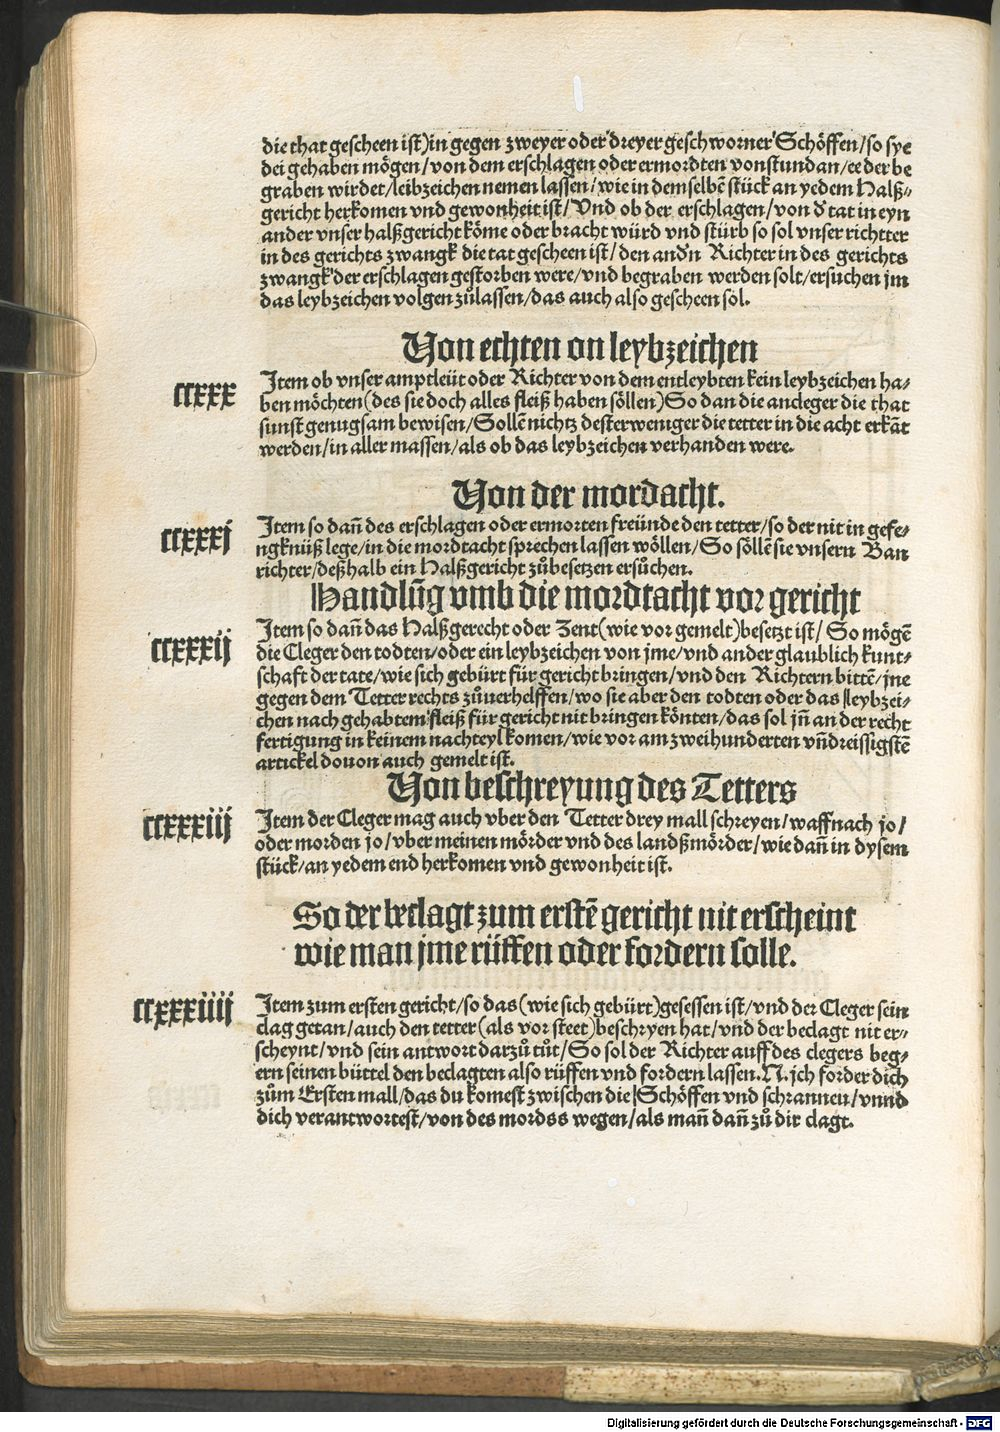 die that gescheen ist)in gegen zweyer oder dreyer geschworner Schöffen/so sye
dei gehaben mögen/von dem erschlagen oder ermordten vonstundan/ee der be
graben wirdet/leibzeichen nemen lassen/wie in demselbē stück an yedem Halß⸗
gericht herkomen vnd gewonheit ist/Vnd ob der erschlagen/von d̕ tat in eyn
ander vnser halßgericht köme oder bracht würd vnd stürb so sol vnser richtter
in des gerichts zwangk die tat gescheen ist/den and̕n Richter in des gerichts
zwangk der erschlagen gestorben were/vnd begraben werden solt/ersuchen jm
das leybzeichen volgen zůlassen/das auch also gescheen sol.
Von echten on leybzeichen
ccxxx Item ob vnser amptleüt oder Richter von dem entleybten kein leybzeichen ha⸗
ben möchten(des sie doch alles fleiß haben söllen)So dan die ancleger die that
sunst genugsam bewisen/Sollē nichtz desterweniger die tetter in die acht erkāt
werden/in aller massen/als ob das leybzeichen verhanden were.
Von der mordacht.
ccxxxj Item so dañ des erschlagen oder ermorten freünde den tetter/so der nit in gefe⸗
ngknüß lege/in die mordtacht sprechen lassen wöllen/So söllē sie vnsern Ban
richter/deßhalb ein Halßgericht zůbesetzen ersůchen.
Handlūg vmb die mordtacht vor gericht
ccxxxij Item so dañ das Halßgerecht oder Zent(wie vor gemelt)besetzt ist/ So mögē
die Cleger den todten/oder ein leybzeichen von jme/vnd ander glaublich kunt⸗
schaft der tate/wie sich gebürt für gericht bringen/vnd den Richtern bittē/jne
gegen dem Tetter rechts zůuerhelffen/wo sie aber den todten oder das leybzei⸗
chen nach gehabtem fleiß für gericht nit bringen könten/das sol jñ an der recht
fertigung in keinem nachteyl komen/wie vor am zweihunderten vñdreissigstē
artickel douon auch gemelt ist.
Von beschreyung des Tetters
ccxxxiij Item der Cleger mag auch vber den Tetter drey mall schreyen/waffnach jo/
oder morden jo/vber meinen mörder vnd des landßmörder/wie dañ in dysem
stück/an yedem end herkomen vnd gewonheit ist.
So der beclagt zum erstē gericht nit erscheint
wie man jme rüffen oder fordern solle.
ccxxxiiij Item zum ersten gericht/so das(wie sich gebürt)gesessen ist/vnd der Cleger sein
clag getan/auch den tetter(als vor steet)beschryen hat/vnd der beclagt nit er⸗
scheynt/vnd sein antwort darzů tůt/So sol der Richter auff des clegers beg⸗
ern seinen büttel den beclagten also rüffen vnd fordern lassen.N.jch forder dich
zům Ersten mall/das du komest zwischen die Schöffen vnd schrannen/vnnd
dich verantwortest/von des mordss wegen/als mañ dañ zů dir clagt.
Digitalisierung gefördert durch die Deutsche Forschungsgemeinschaft - DFG